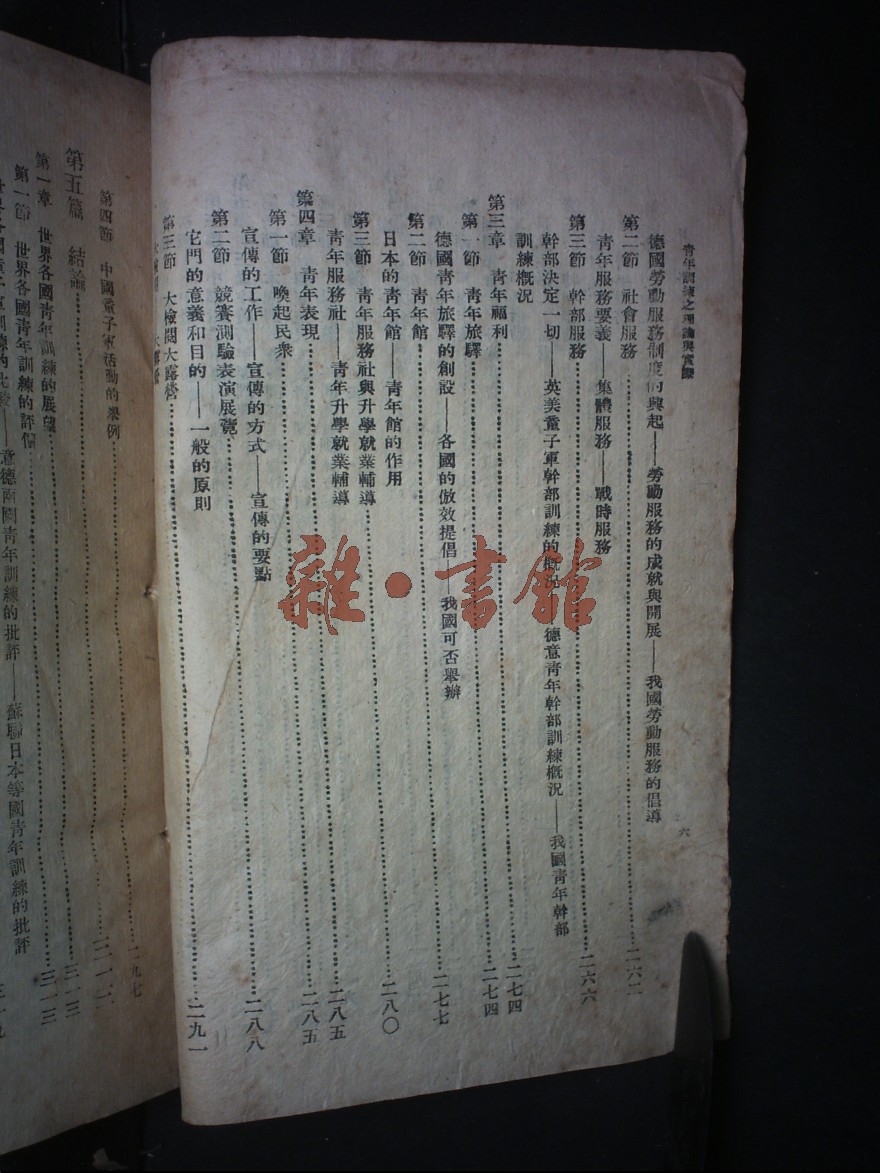 青年訓練之理論與實際
六
德國勞動服務制度的興起——勞動服務的成就與開展——我國勞動服務的倡導
第二節 社會服務……二六二
青年服務要義——集體服務——戰時服務
第三節 幹部服務……二六六
幹部決定一切——英美童子軍幹部訓練的概況——德意青年幹部訓練概況——我國青年幹部
訓練概況
第三章 青年福利……二七四
第一節 青年旅驛……二七四
德國青年旅驛的創設——各國的倣效提倡——我國可否舉辦
第二節 青年館……二七七
日本的青年館——青年館的作用
第三節 青年服務社與升學就業輔導……二八〇
青年服務社——青年升學就業輔導
第四章 青年表現……二八五
第一節 喚起民衆……二八五
宣傳的工作——宣傳的方式——宣傳的要點
第二節 競賽測驗表演展覽……二八八
它們的意義和目的——一般的原則
第三節 大檢閱大露營……二九一
第四節 中國童子軍活動的舉例……二九七
第五篇 結論……三一三
第一章 世界各國青年訓練的展望……三一三
第一節 世界各國青年訓練的評價……三一三
意德兩國青年訓練的批評——蘇聯日本等國青年訓練的批評
雜·書館